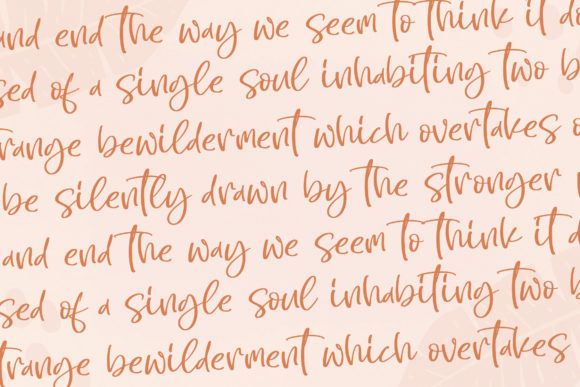 and end the way we seem to think it d
sed of a single soul inhabiting two b
range bewilderment which overtakes o
be silently drawn by the stronger
and end the way we seem to think it d
sed of a single soul inhabiting two b
trange bewilderment which overtakes